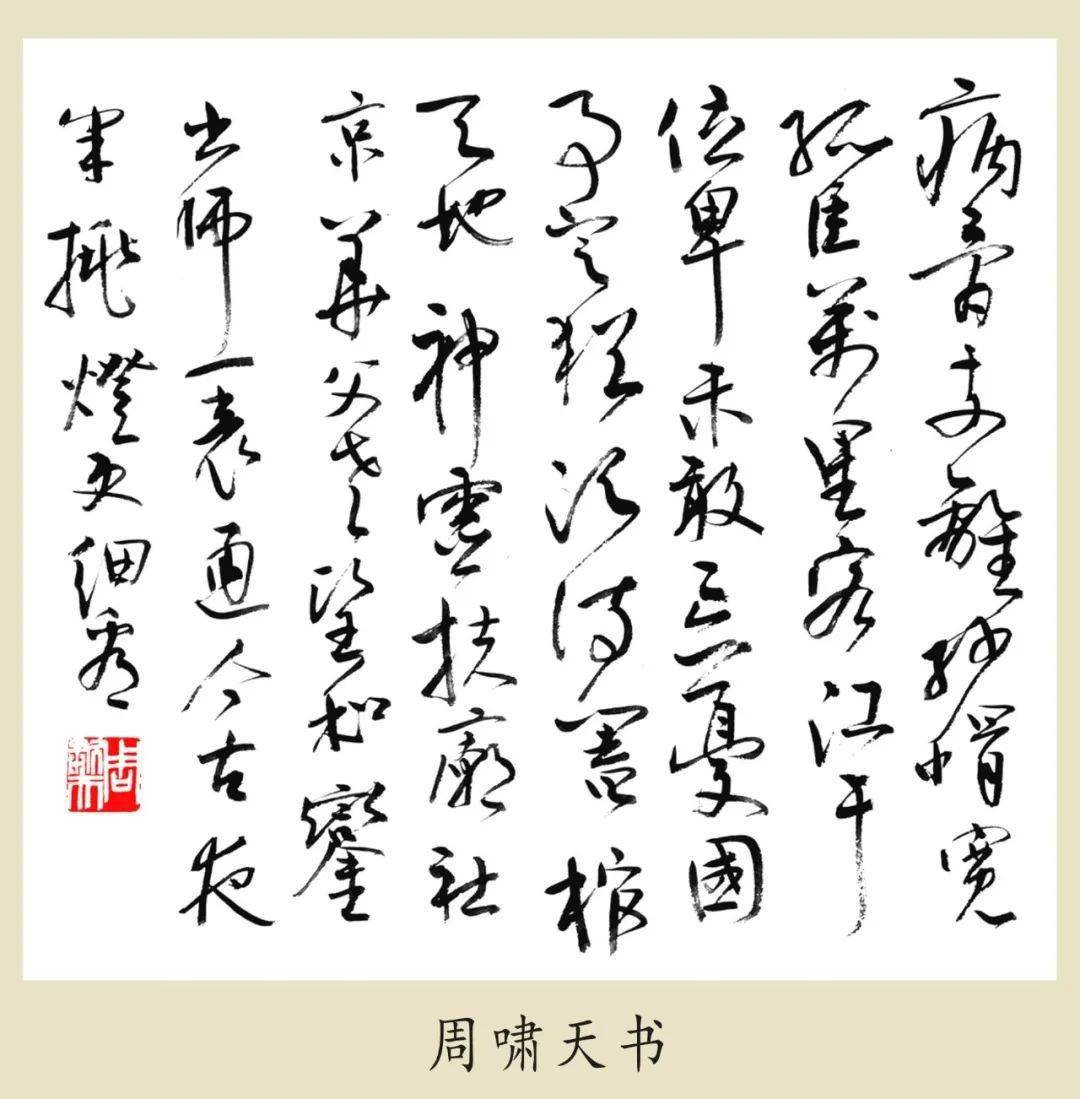 病骨支離紗帽寬
孤臣萬里客江干
位卑未敢忘憂國
事定猶須待闔棺
天地神靈扶廟社
京華父老望和鑾
出師一表通今古夜
半挑燈更細看
周啸天书